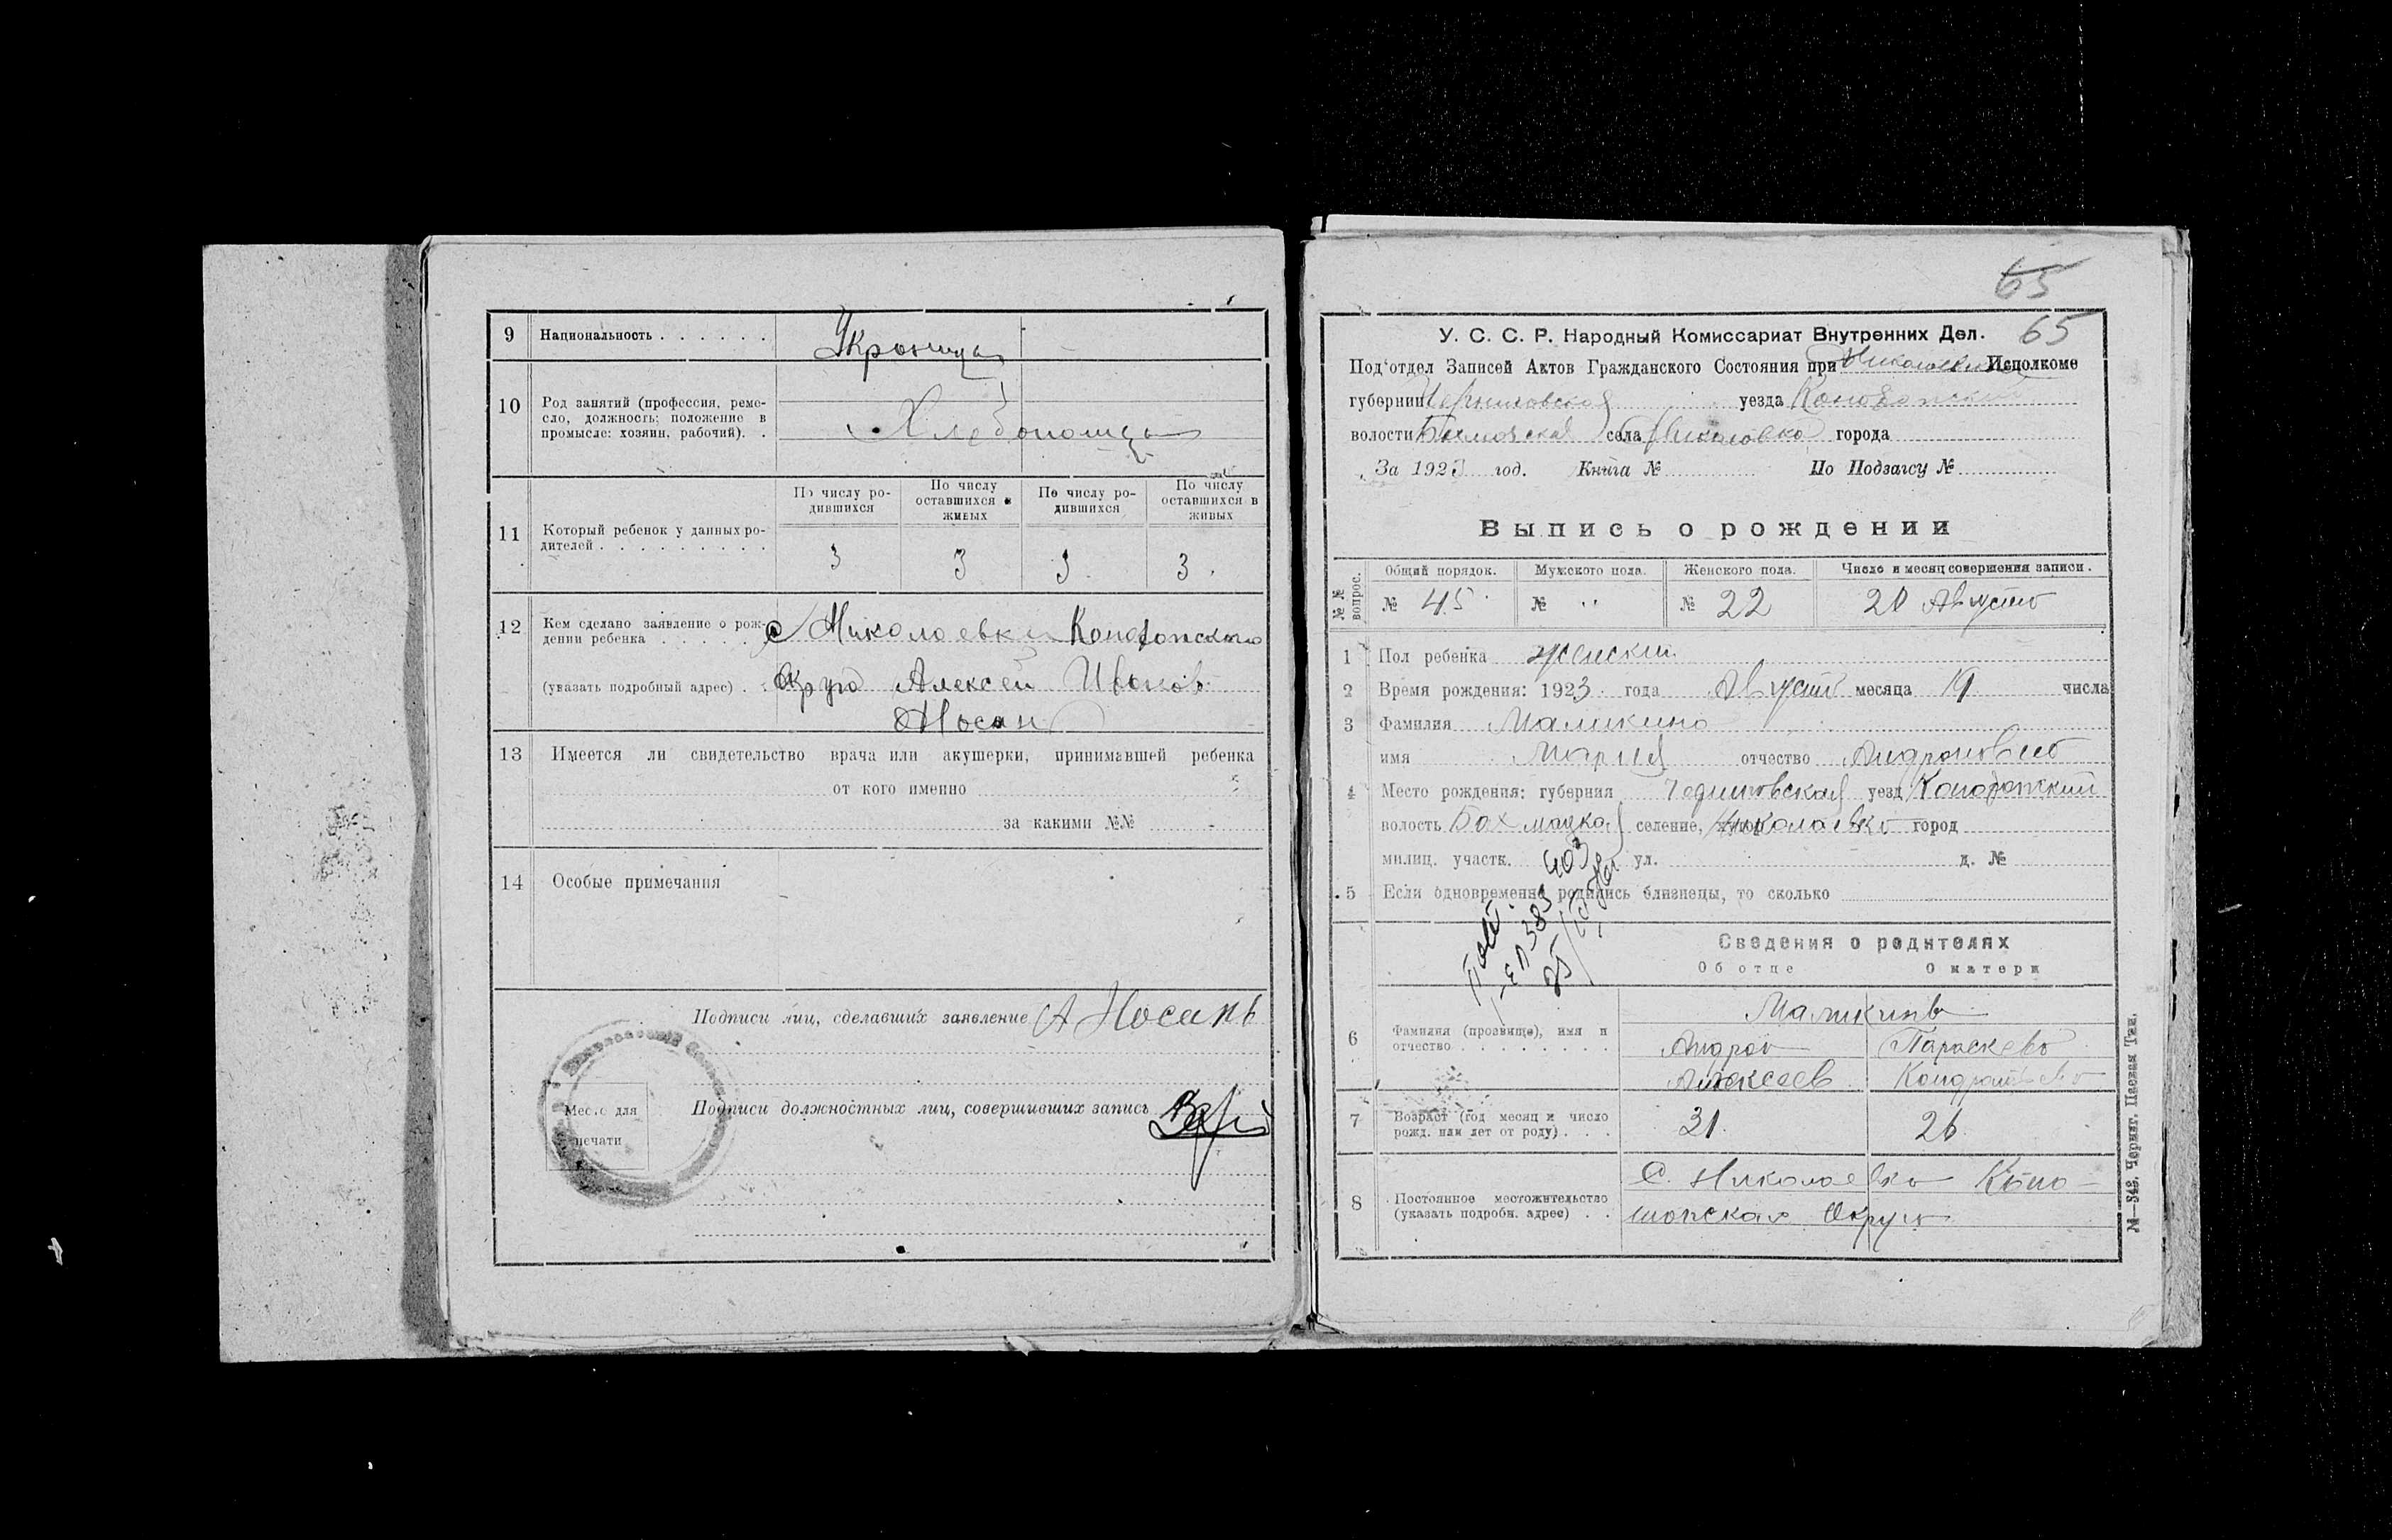 9 Национальность . . . . . . Украинцы
10 Род занятий (профессия, реме-
сло, должность; положение в
промысле: хозяин, рабочий). .
Хлебопашцы
По числу ро-
дившихся
По числу
оставшихся в
живых
По числу ро-
дившихся
По числу
оставшихся в
живых
11 Который ребенок у данных ро-
дителей . . . . . . . . .
3 3 3 3
12 Кем сделано заявление о рож-
дении ребенка . . . . . с Николаевки Конотопского
(указать подробный адрес) . . Округа Алексей Иванов
Носан
13 Имеется ли свидетельство врача или акушерки, принимавшей ребенка
от кого именно
за какими №№
14 Особые примечания
Подписи лиц, сделавших заявление А Носань
Подписи должностных лиц, совершивших запись
Место для
печати
65
65
У. С. С. Р. Народный Комиссариат Внутренних Дел.
Под'отдел Записей Актов Гражданского Состояния при Исполкоме
губернии Черниговской уезда Конотопского
волости Бахмачская села Николаевка города
За 1923 год. Книга № По Подзагсу №
Выпись о рождении
№ № вопрос.
Общий порядок. Мужского пола. Женского пола. Число и месяц совершения записи.
№ 45 № " № 22 20 Августа
1 Пол ребенка женский
2 Время рождения: 1923 года Август месяца 19 числа
3 Фамилия Маликина
имя Мария отчество Андроновна
4 Место рождения: губерния Черниговская уезд Конотопский
волость Бахмацкая селение, Николаевка город
милиц. участк. ул. д. №
5 Если одновременно родились близнецы, то сколько
Сведения о родителях
Об отце О матери
6 Фамилия (прозвище), имя и
отчество . . . . . . . .
Маликины
Андрон Параскева
Алексеев Кондратьева
7 Возраст (год месяц и число
рожд. или лет от роду) . . .
31 26
8 Постоянное местожительство
(указать подробн. адрес) . .
С. Николаевка Коно-
топская Округа
№—542. Черниг. Паевая Тип.